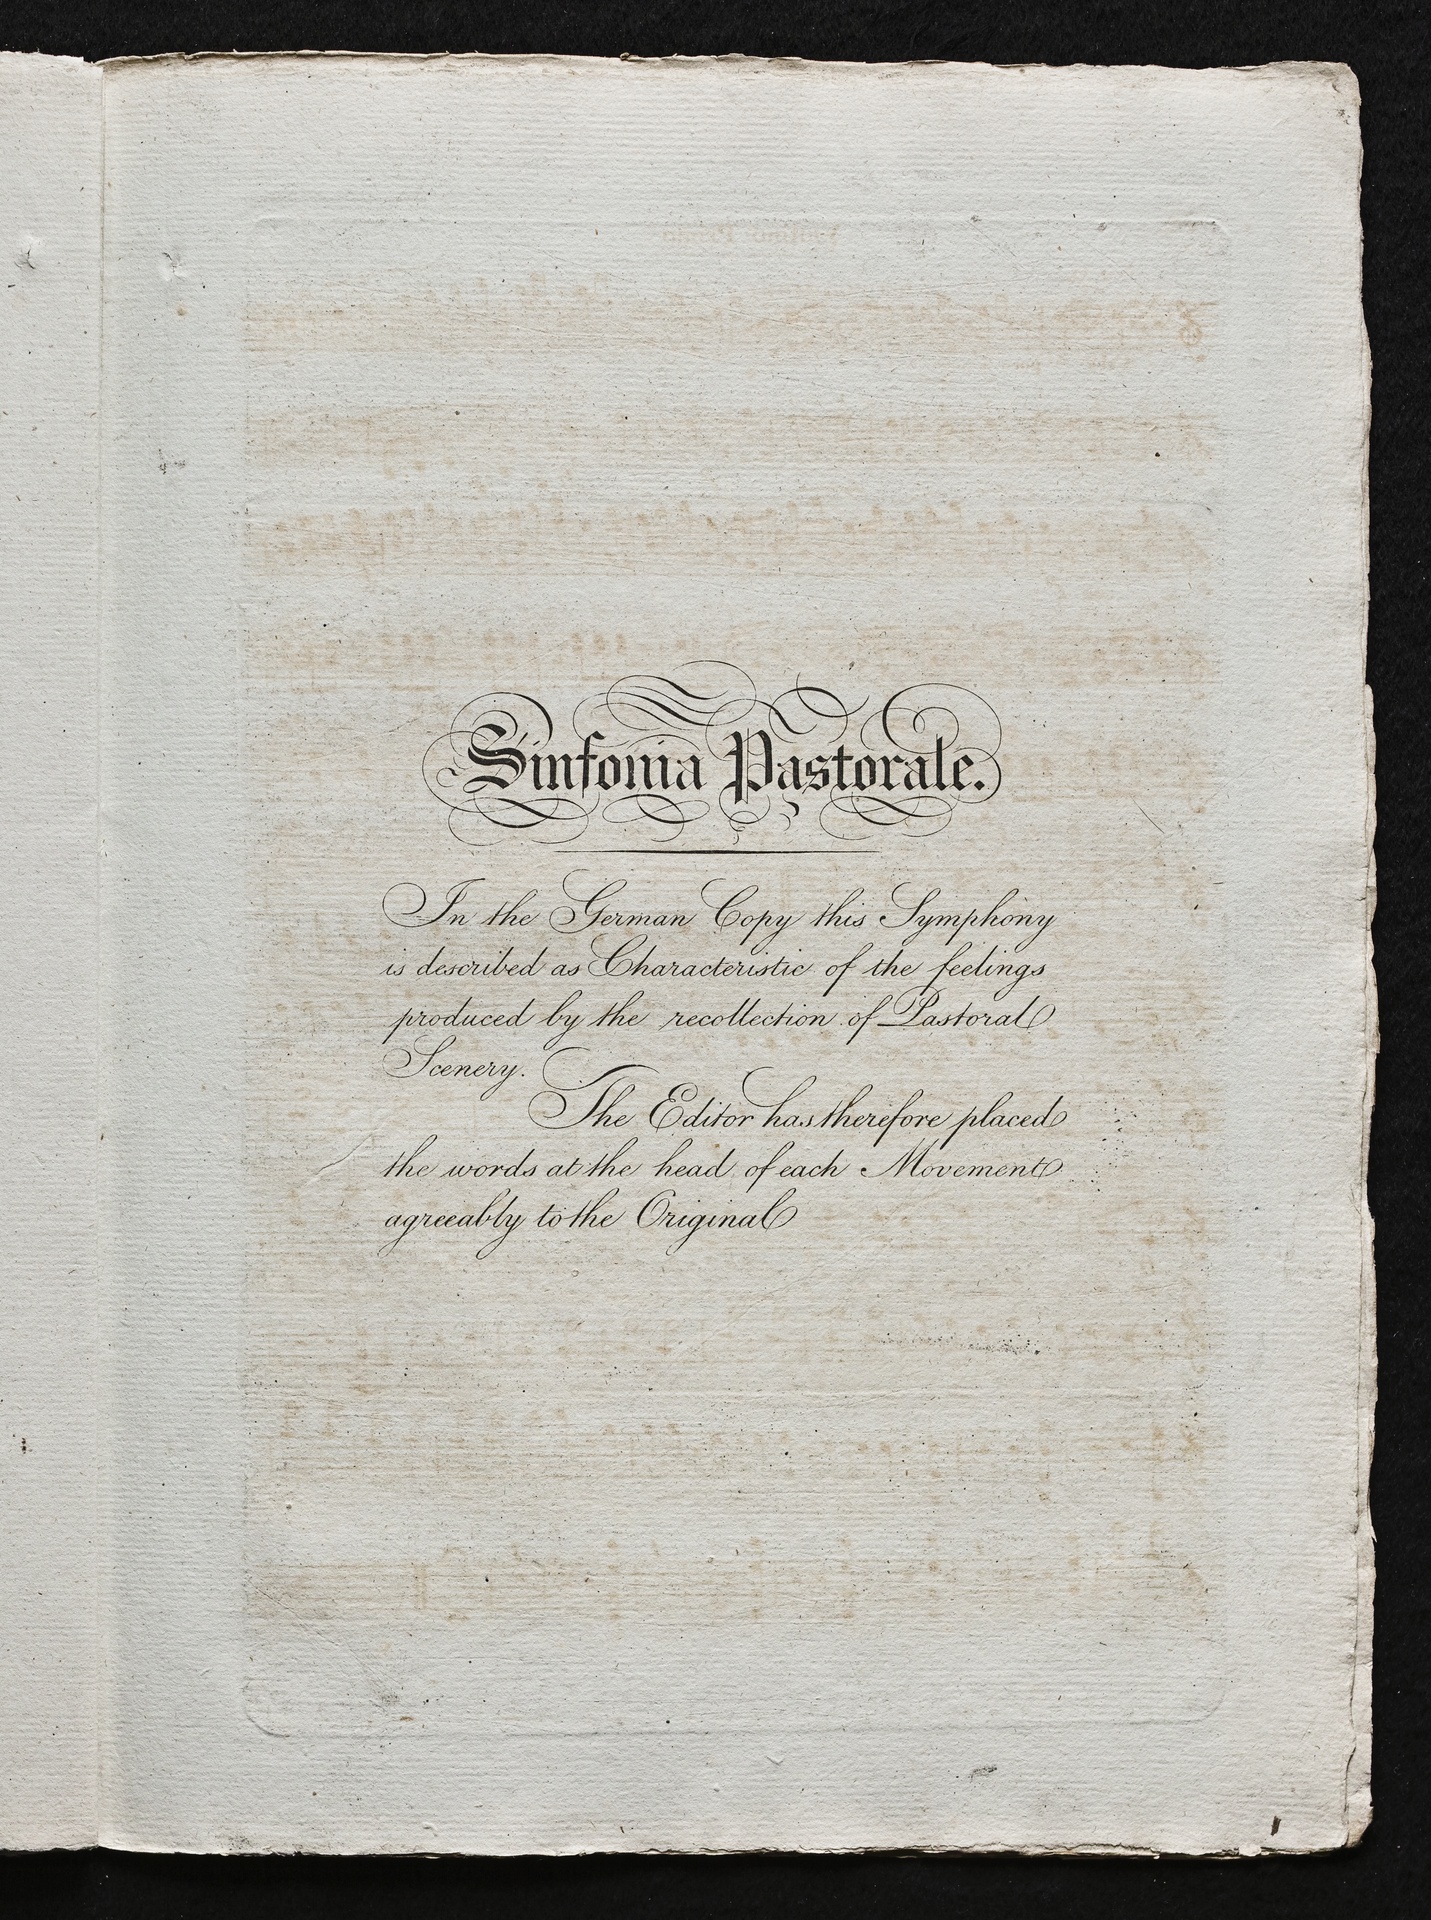 Sinfonia Pastorale.
In the German Copy this Symphony
is described as Characteristic of the feelings
produced by the recollection of Pastoral
Scenery.
The Editor has therefore placed
the words at the head of each Movement
agreeably to the Original